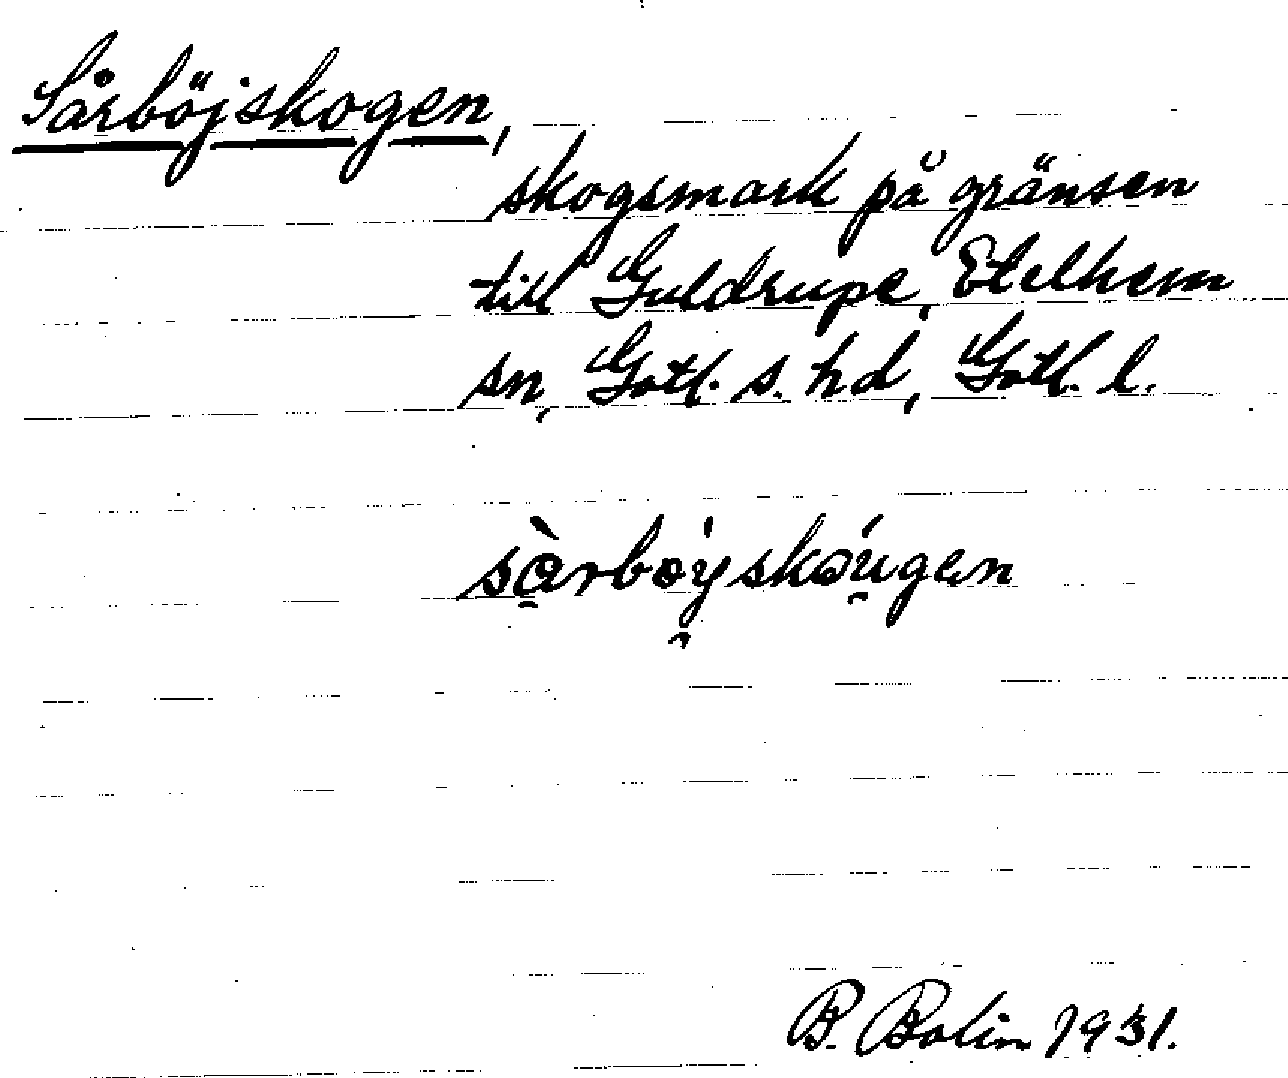 Sårböjskogen,
skogsmark på gränsen
till Guldrupe, Etelhem
sn, Gotl. s. hd, Gotl. l.
B. Bolin 1931.